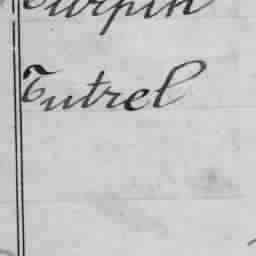 Turpin
Tutrel